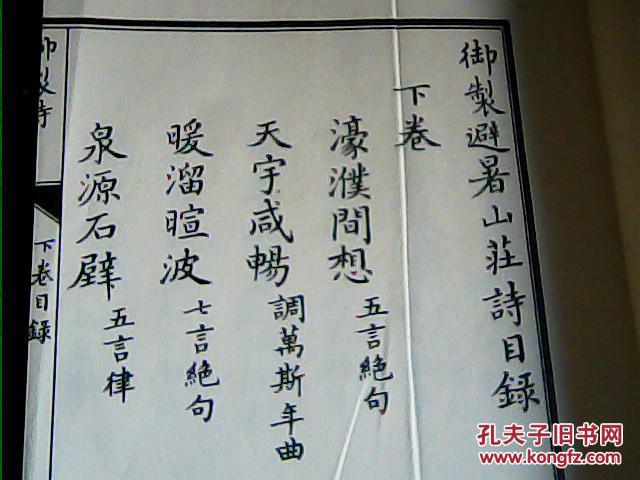 御製避暑山莊詩目錄
下卷
濠濮間想 五言絕句
天宇咸暢 調萬斯年曲
暖溜暄波 七言絕句
泉源石壁 五言律
御製詩
下卷目錄
孔夫子旧书网
www.kongfz.com